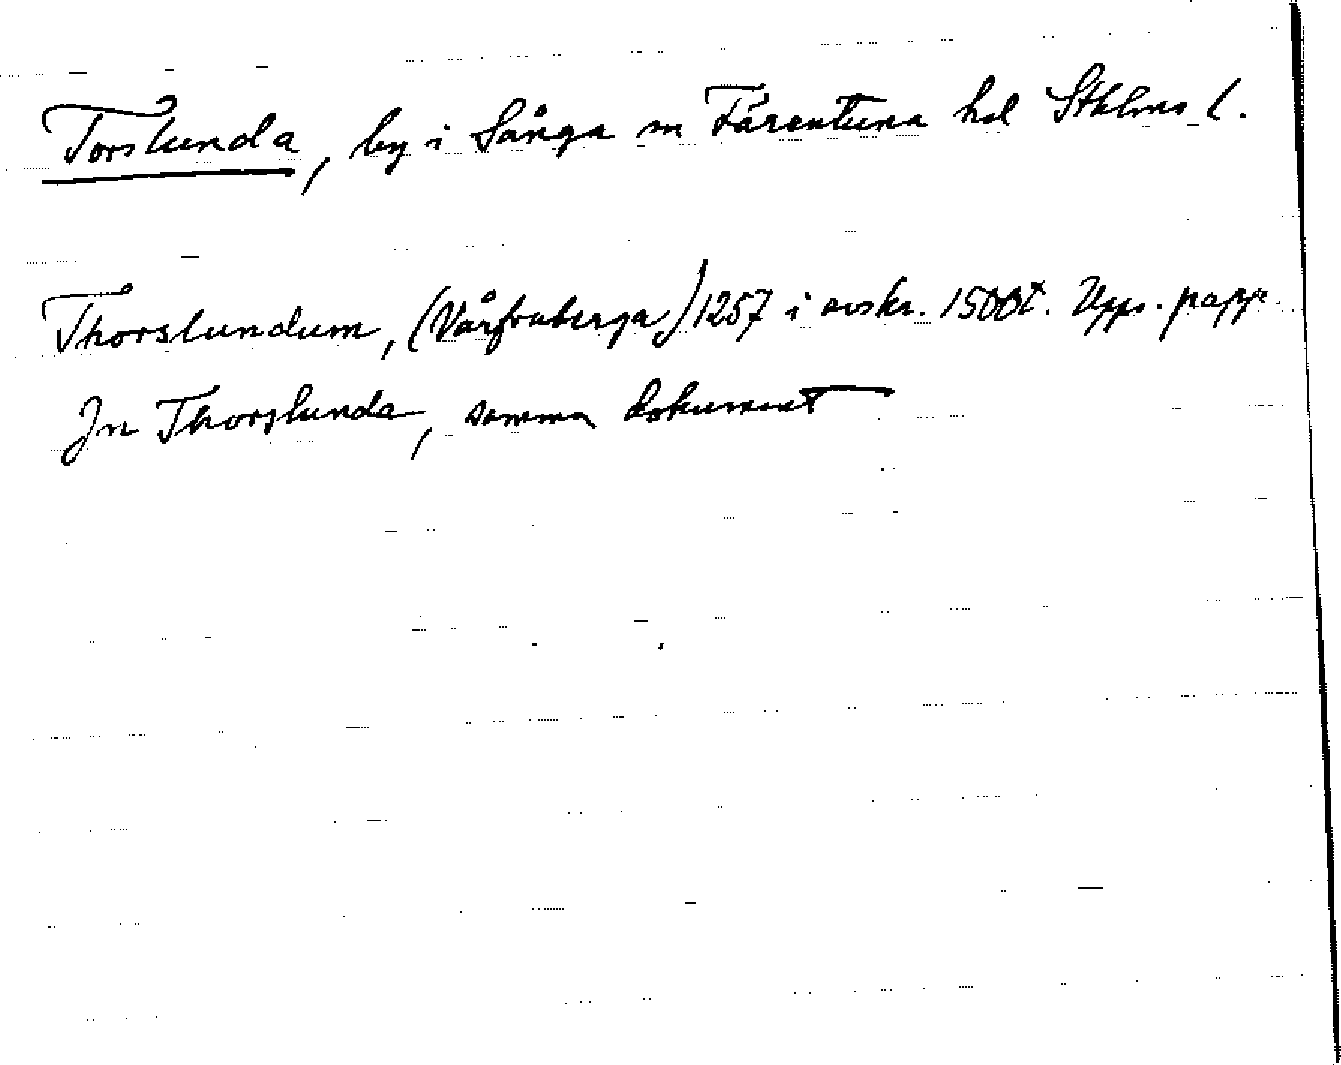 Torslunda, by i Sånga sn Färentuna hd Sthlms l.
Thorslundum, (Vårfruberga) 1257 i avskr. 1500t. Upps. papp.
Jn Thorslunda, samma dokument